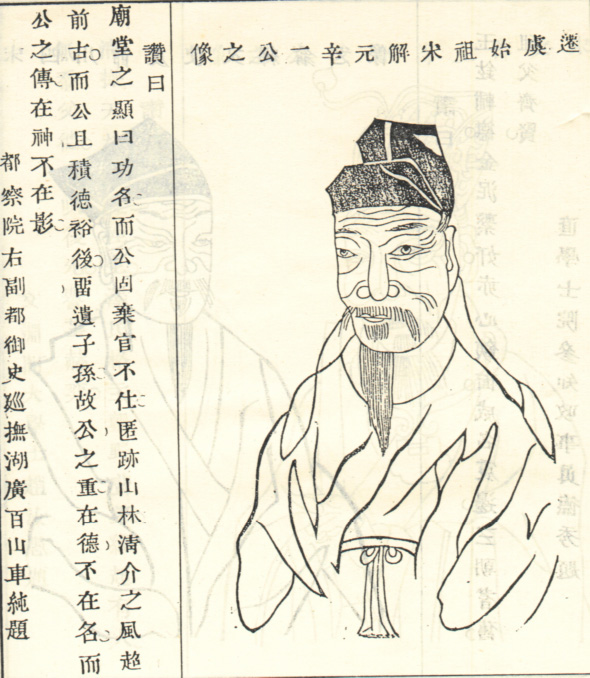 遷虞始祖宋解元辛一公之像
讚曰
廟堂之顯曰功名而公固棄官不仕匿跡山林淸介之風超
前古而公且積德裕後畱遺子孫故公之重在德不在名而
公之傳在神不在影
都察院右副都御史廵撫湖廣百山車純題